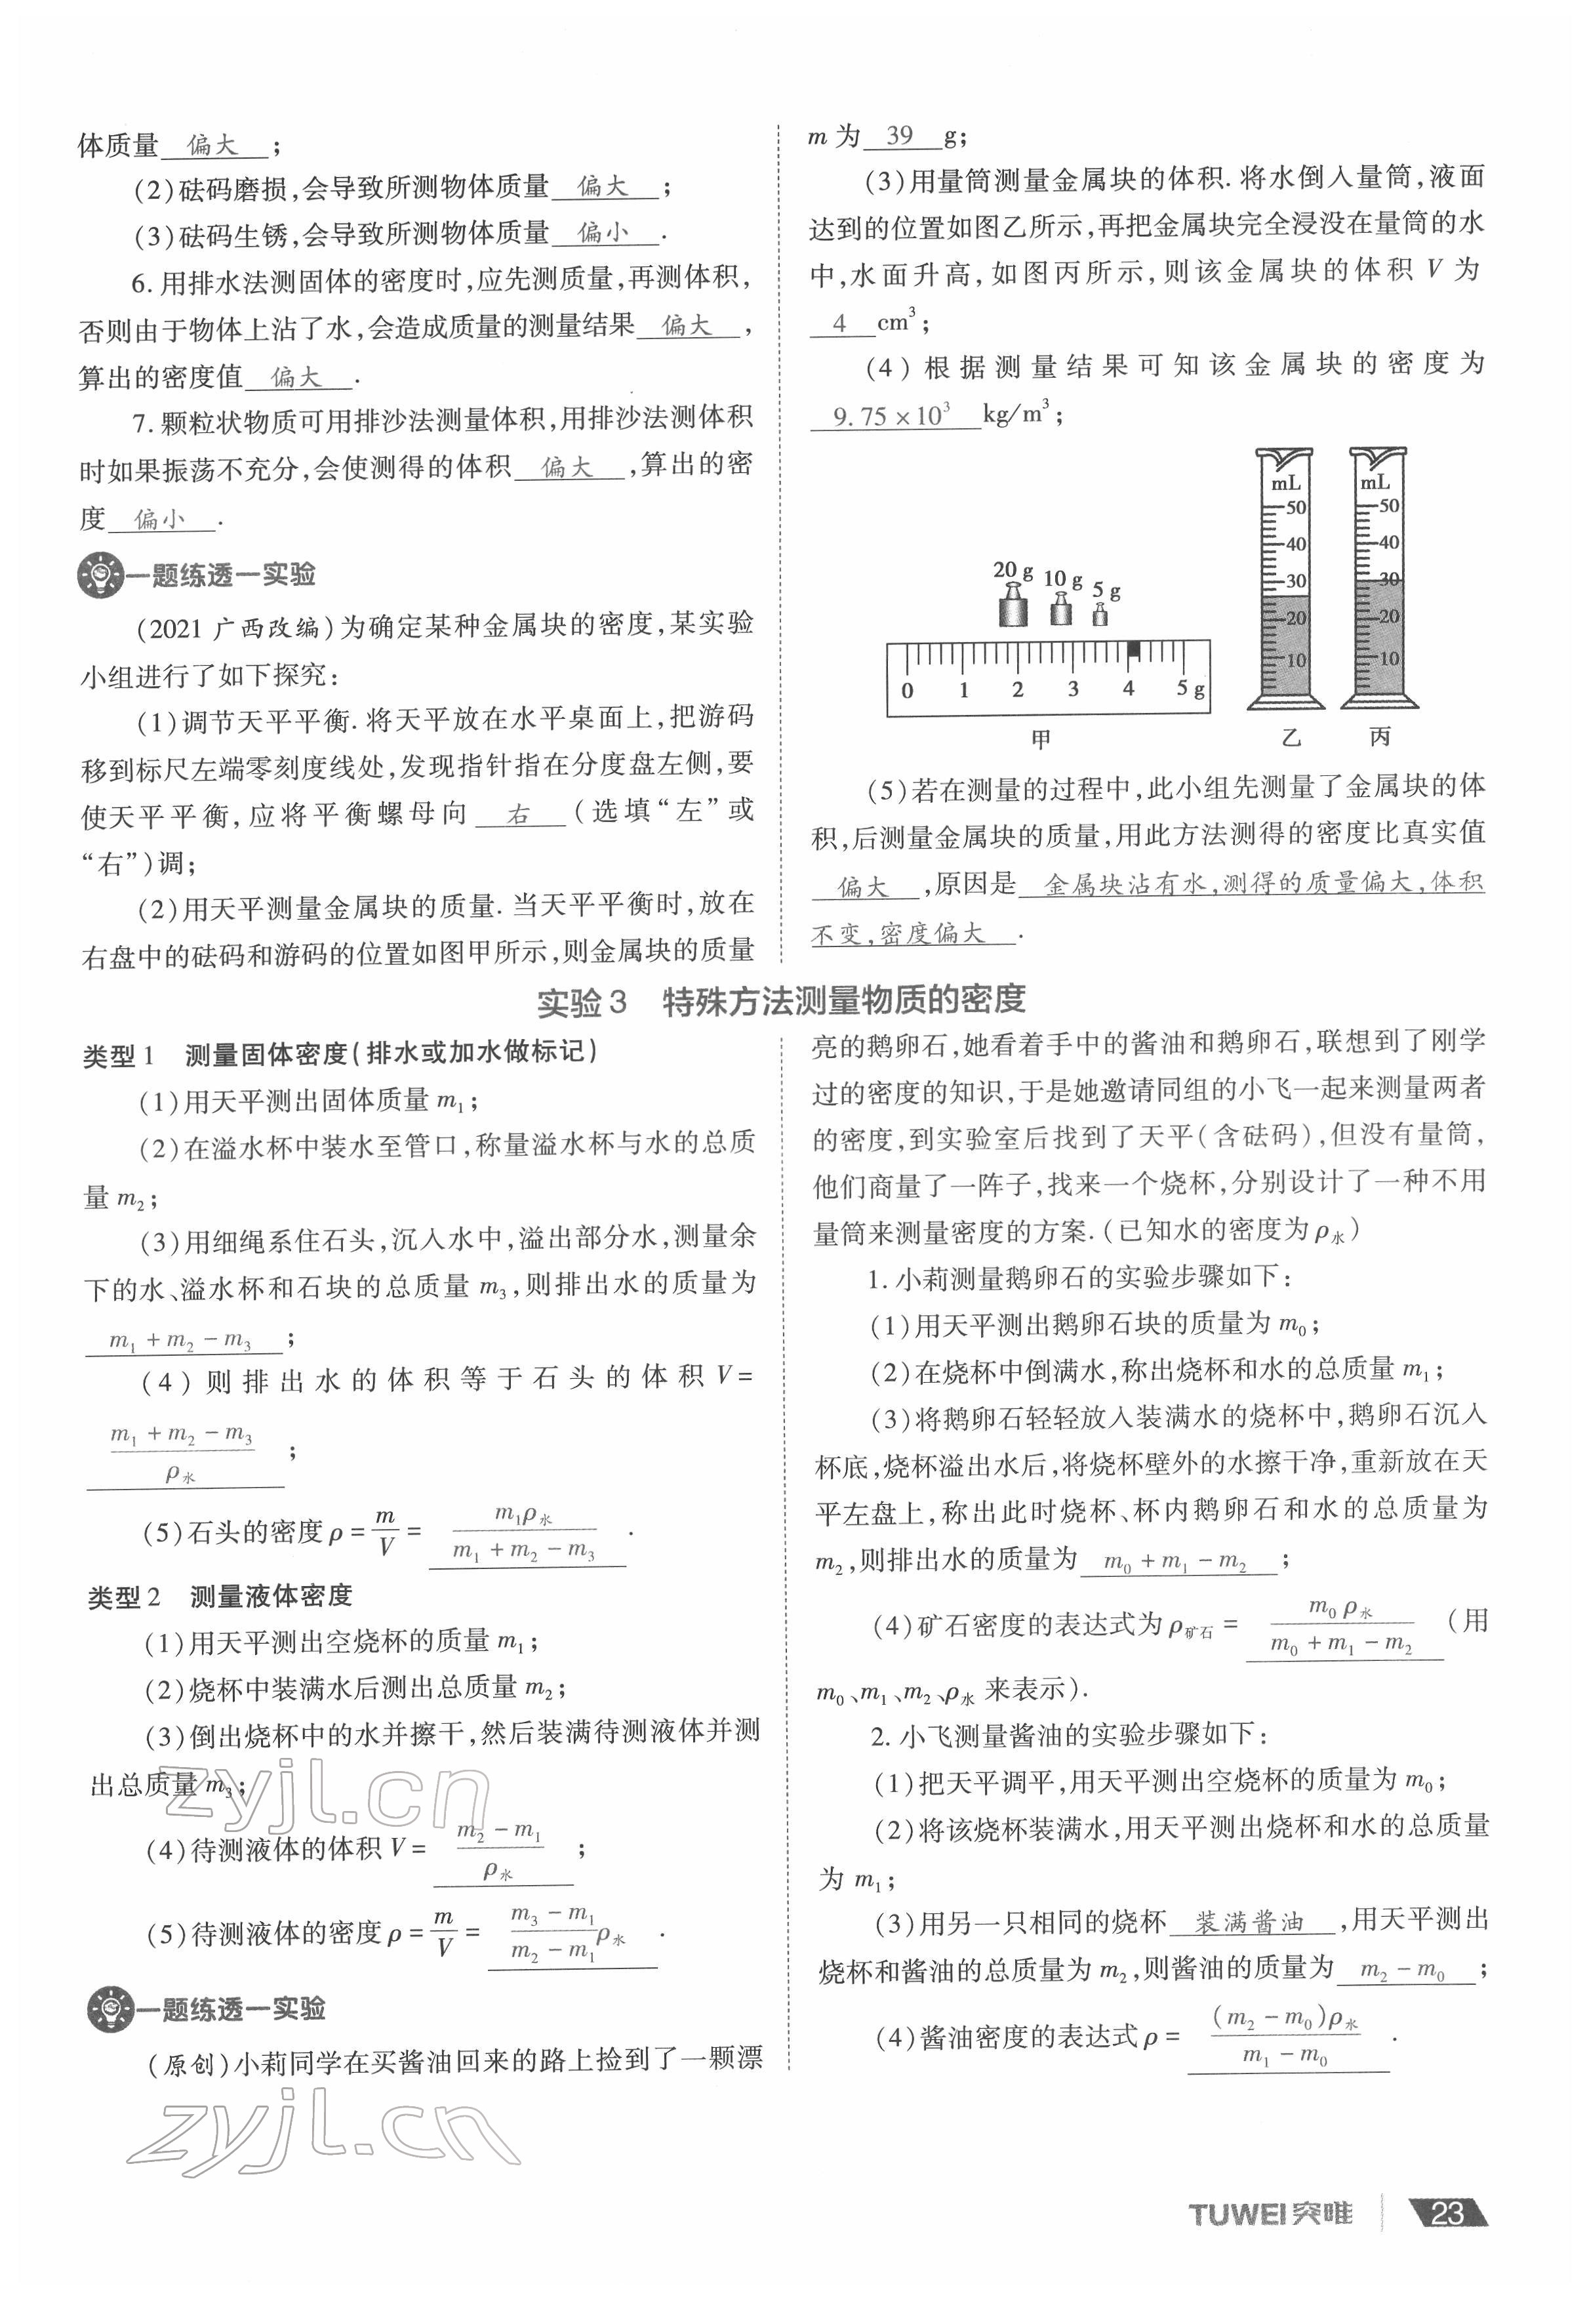 体质量 偏大 ；
(2)砝码磨损，会导致所测物体质量 偏大 ；
(3)砝码生锈，会导致所测物体质量 偏小 .
6. 用排水法测固体的密度时，应先测质量，再测体积，
否则由于物体上沾了水，会造成质量的测量结果 偏大 ，
算出的密度值 偏大 .
7. 颗粒状物质可用排沙法测量体积，用排沙法测体积
时如果振荡不充分，会使测得的体积 偏大 ，算出的密
度 偏小 .
一题练透一实验
(2021 广西改编)为确定某种金属块的密度，某实验
小组进行了如下探究：
(1)调节天平平衡. 将天平放在水平桌面上，把游码
移到标尺左端零刻度线处，发现指针指在分度盘左侧，要
使天平平衡，应将平衡螺母向 右 (选填“左”或
“右”)调；
(2)用天平测量金属块的质量. 当天平平衡时，放在
右盘中的砝码和游码的位置如图甲所示，则金属块的质量
m 为 39 g；
(3)用量筒测量金属块的体积. 将水倒入量筒，液面
达到的位置如图乙所示，再把金属块完全浸没在量筒的水
中，水面升高，如图丙所示，则该金属块的体积 V 为
4 cm³；
(4)根据测量结果可知该金属块的密度为
9.75×10³ kg/m³；
20 g 10 g 5 g
0 1 2 3 4 5 g
甲
mL
50
40
30
20
10
乙
mL
50
40
30
20
10
丙
(5)若在测量的过程中，此小组先测量了金属块的体
积，后测量金属块的质量，用此方法测得的密度比真实值
偏大 ，原因是 金属块沾有水，测得的质量偏大，体积
不变，密度偏大 .
实验3 特殊方法测量物质的密度
类型1 测量固体密度(排水或加水做标记)
(1)用天平测出固体质量 m₁；
(2)在溢水杯中装水至管口，称量溢水杯与水的总质
量 m₂；
(3)用细绳系住石头，沉入水中，溢出部分水，测量余
下的水、溢水杯和石块的总质量 m₃，则排出水的质量为
m₁+m₂−m₃ ；
(4)则排出水的体积等于石头的体积 V=
(m₁+m₂−m₃)/ρ水 ；
(5)石头的密度 ρ=m/V= m₁ρ水/(m₁+m₂−m₃) .
类型2 测量液体密度
(1)用天平测出空烧杯的质量 m₁；
(2)烧杯中装满水后测出总质量 m₂；
(3)倒出烧杯中的水并擦干，然后装满待测液体并测
出总质量 m₃；
(4)待测液体的体积 V= (m₂−m₁)/ρ水 ；
(5)待测液体的密度 ρ=m/V= (m₃−m₁)/(m₂−m₁)ρ水 .
一题练透一实验
(原创)小莉同学在买酱油回来的路上捡到了一颗漂
亮的鹅卵石，她看着手中的酱油和鹅卵石，联想到了刚学
过的密度的知识，于是她邀请同组的小飞一起来测量两者
的密度，到实验室后找到了天平(含砝码)，但没有量筒，
他们商量了一阵子，找来一个烧杯，分别设计了一种不用
量筒来测量密度的方案.(已知水的密度为 ρ水)
1. 小莉测量鹅卵石的实验步骤如下：
(1)用天平测出鹅卵石块的质量为 m₀；
(2)在烧杯中倒满水，称出烧杯和水的总质量 m₁；
(3)将鹅卵石轻轻放入装满水的烧杯中，鹅卵石沉入
杯底，烧杯溢出水后，将烧杯壁外的水擦干净，重新放在天
平左盘上，称出此时烧杯、杯内鹅卵石和水的总质量为
m₂，则排出水的质量为 m₀+m₁−m₂ ；
(4)矿石密度的表达式为 ρ矿石= m₀ρ水/(m₀+m₁−m₂) (用
m₀、m₁、m₂、ρ水 来表示).
2. 小飞测量酱油的实验步骤如下：
(1)把天平调平，用天平测出空烧杯的质量为 m₀；
(2)将该烧杯装满水，用天平测出烧杯和水的总质量
为 m₁；
(3)用另一只相同的烧杯 装满酱油 ，用天平测出
烧杯和酱油的总质量为 m₂，则酱油的质量为 m₂−m₀ ；
(4)酱油密度的表达式 ρ= (m₂−m₀)ρ水/(m₁−m₀) .
zyjl.cn
zyjl.cn
TUWEI突唯
23